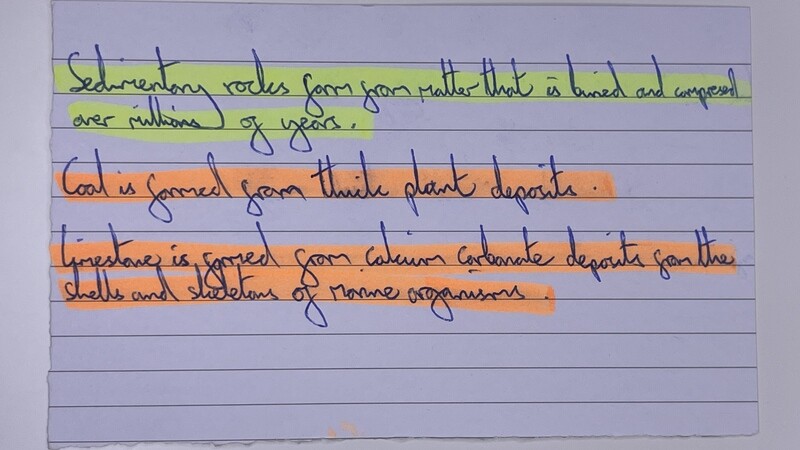 Sedimentary rocks form from matter that is buried and compressed
over millions of years.
Coal is formed from thick plant deposits.
Limestone is formed from calcium carbonate deposits from the
shells and skeletons of marine organisms.